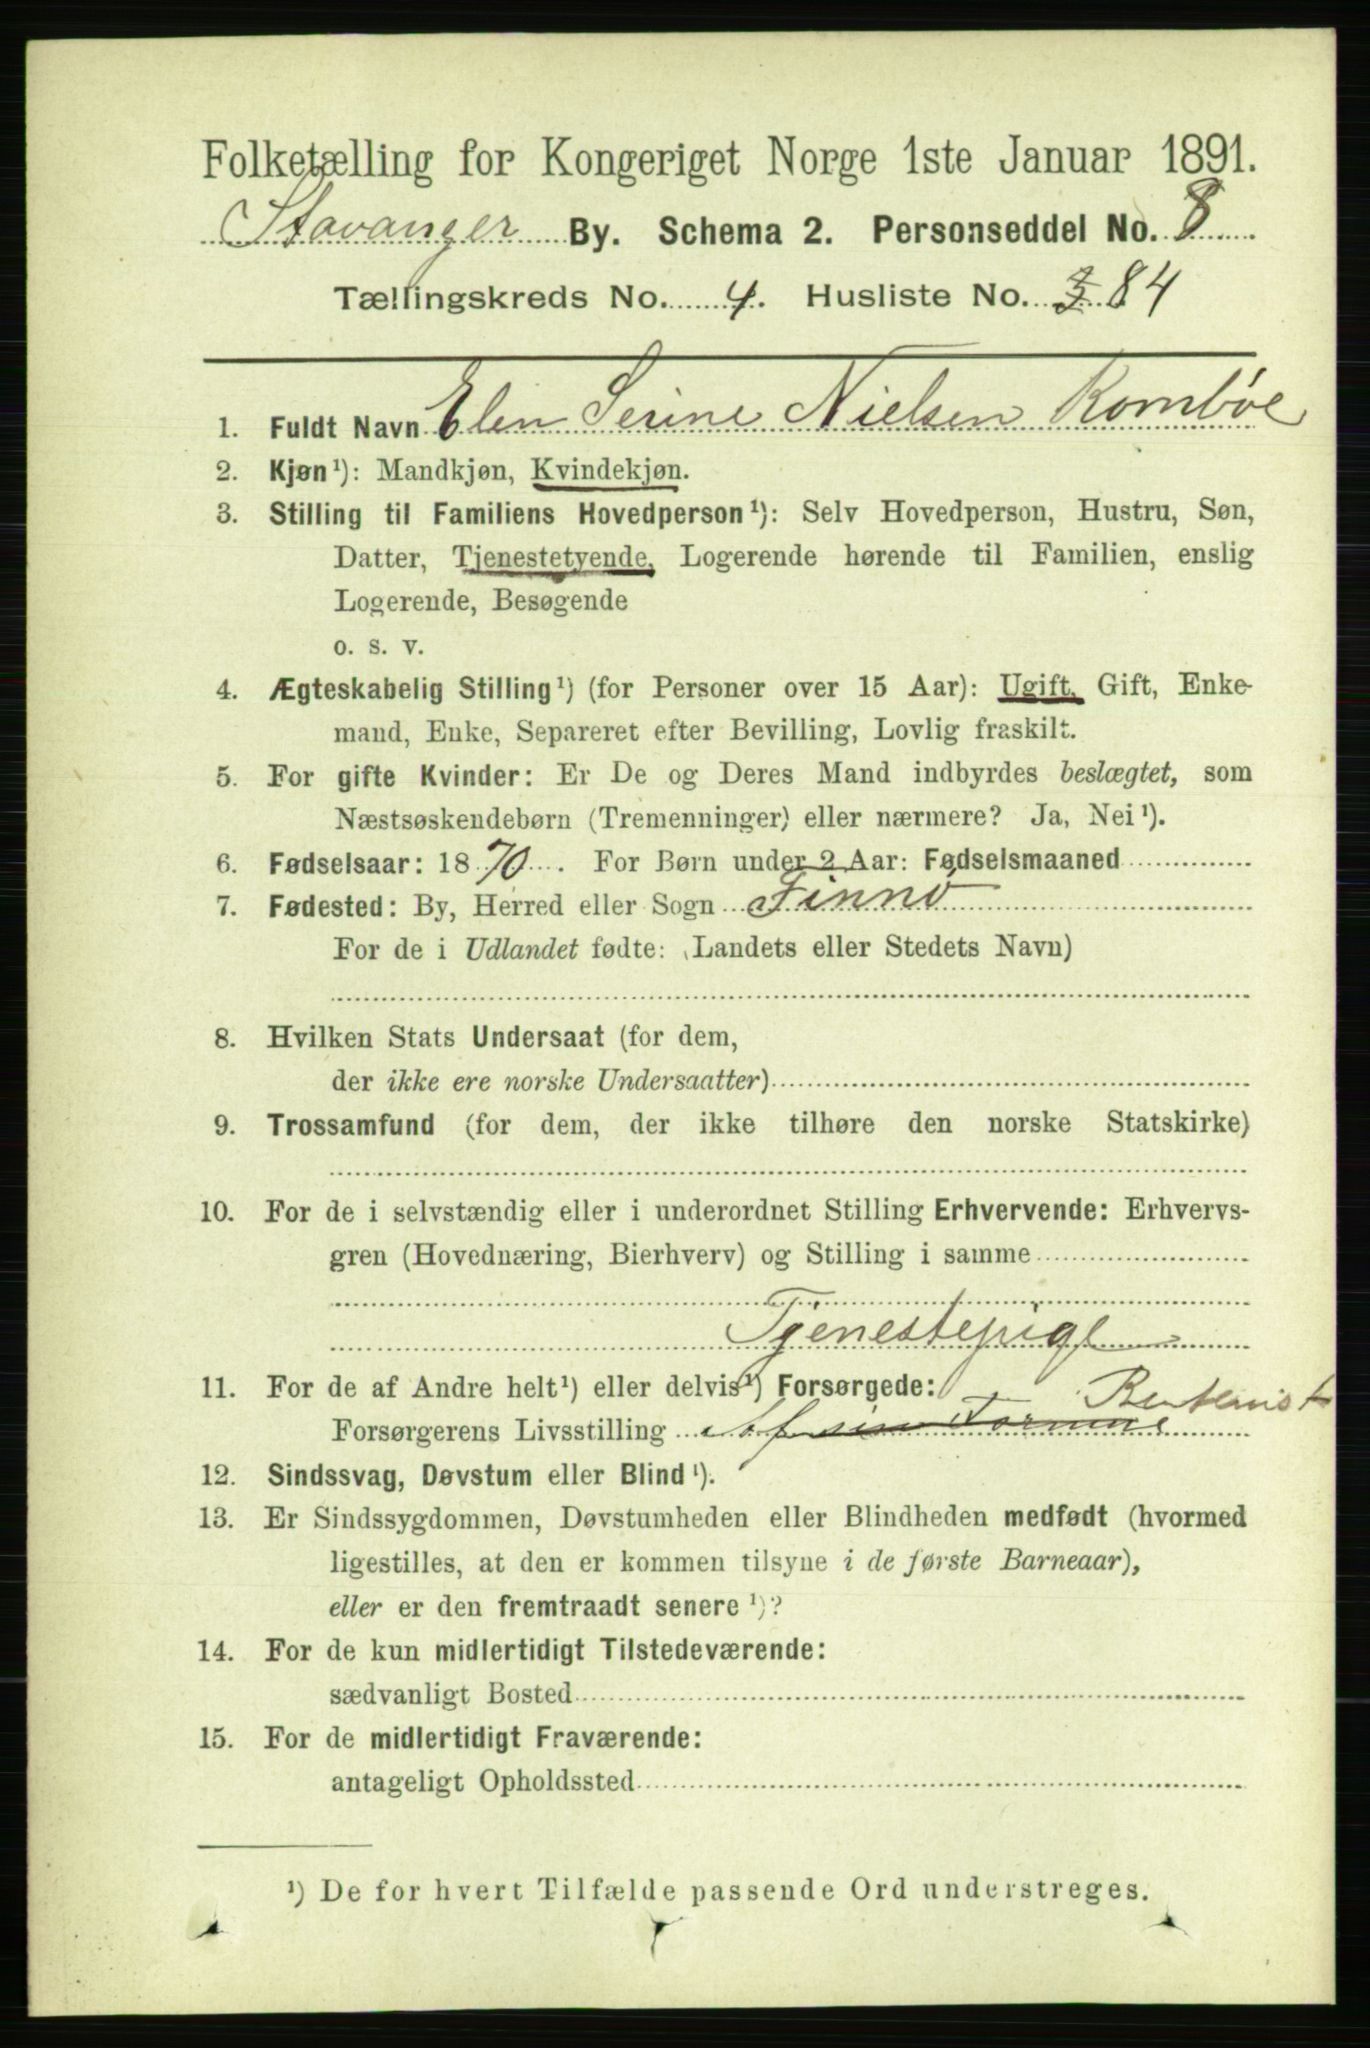 Folketælling for Kongeriget Norge 1ste Januar 1891.
Stavanger By. Schema 2. Personseddel No. 8
Tællingskreds No. 4. Husliste No. 3 84
1. Fuldt Navn Elen Serine Nielsen Rombøe
2. Kjøn¹): Mandkjøn, Kvindekjøn.
3. Stilling til Familiens Hovedperson¹): Selv Hovedperson, Hustru, Søn,
Datter, Tjenestetyende, Logerende hørende til Familien, enslig
Logerende, Besøgende
o. s. v.
4. Ægteskabelig Stilling¹) (for Personer over 15 Aar): Ugift, Gift, Enke-
mand, Enke, Separeret efter Bevilling, Lovlig fraskilt.
5. For gifte Kvinder: Er De og Deres Mand indbyrdes beslægtet, som
Næstsøskendebørn (Tremenninger) eller nærmere? Ja, Nei¹).
6. Fødselsaar: 1870. For Børn under 2 Aar: Fødselsmaaned
7. Fødested: By, Herred eller Sogn Finnø
For de i Udlandet fødte: (Landets eller Stedets Navn)
8. Hvilken Stats Undersaat (for dem,
der ikke ere norske Undersaatter)
9. Trossamfund (for dem, der ikke tilhøre den norske Statskirke)
10. For de i selvstændig eller i underordnet Stilling Erhvervende: Erhvervs-
gren (Hovednæring, Bierhverv) og Stilling i samme
Tjenestepige
11. For de af Andre helt¹) eller delvis¹) Forsørgede:
Rentenist
Forsørgerens Livsstilling Af sin Formue
12. Sindssvag, Døvstum eller Blind¹).
13. Er Sindssygdommen, Døvstumheden eller Blindheden medfødt (hvormed
ligestilles, at den er kommen tilsyne i de første Barneaar),
eller er den fremtraadt senere¹)?
14. For de kun midlertidigt Tilstedeværende:
sædvanligt Bosted
15. For de midlertidigt Fraværende:
antageligt Opholdssted
¹) De for hvert Tilfælde passende Ord understreges.